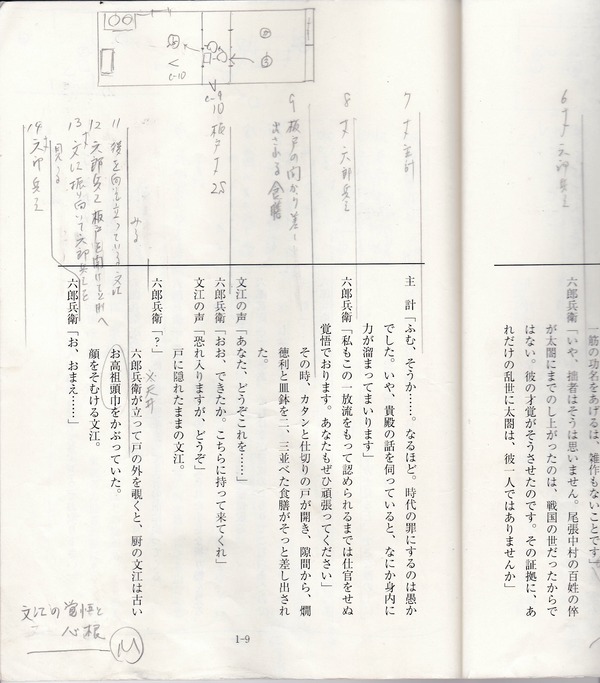 一筋の功名をあげるは、雑作もないことです」
六郎兵衛「いや、拙者はそうは思いません。尾張中村の百姓の伜
が太閤にまでのし上がったのは、戦国の世だったからで
はない。彼の才覚がそうさせたのです。その証拠に、あ
れだけの乱世に太閤は、彼一人ではありませんか」
6
主 計「ふむ、そうか……。なるほど。時代の罪にするのは愚か
でした。いや、貴殿の話を伺っていると、なにか身内に
力が溜まってまいります」
六郎兵衛「私もこの一放流をもって認められるまでは仕官をせぬ
覚悟でおります。あなたもぜひ頑張ってください」
その時、カタンと仕切りの戸が開き、隙間から、燗
徳利と皿鉢を二、三並べた食膳がそっと差し出され
た。
文江の声「あなた、どうぞこれを……」
六郎兵衛「おお、できたか。こちらに持って来てくれ」
文江の声「恐れ入りますが、どうぞ」
戸に隠れたままの文江。
六郎兵衛「？」
六郎兵衛が立って戸の外を覗くと、厨の文江は古い
お高祖頭巾をかぶっていた。
顔をそむける文江。
六郎兵衛「お、おまえ……」
7
8
9 板戸の間から差し
出される食膳
c-9
10 板戸
c-10
11 後を向いて立っている文江
みる
12 六郎兵ヱ板戸を開けて
13 文江振り向いて六郎兵ヱを
見る
14 六郎兵ヱ
文江の覚悟と
心根
M
1-9